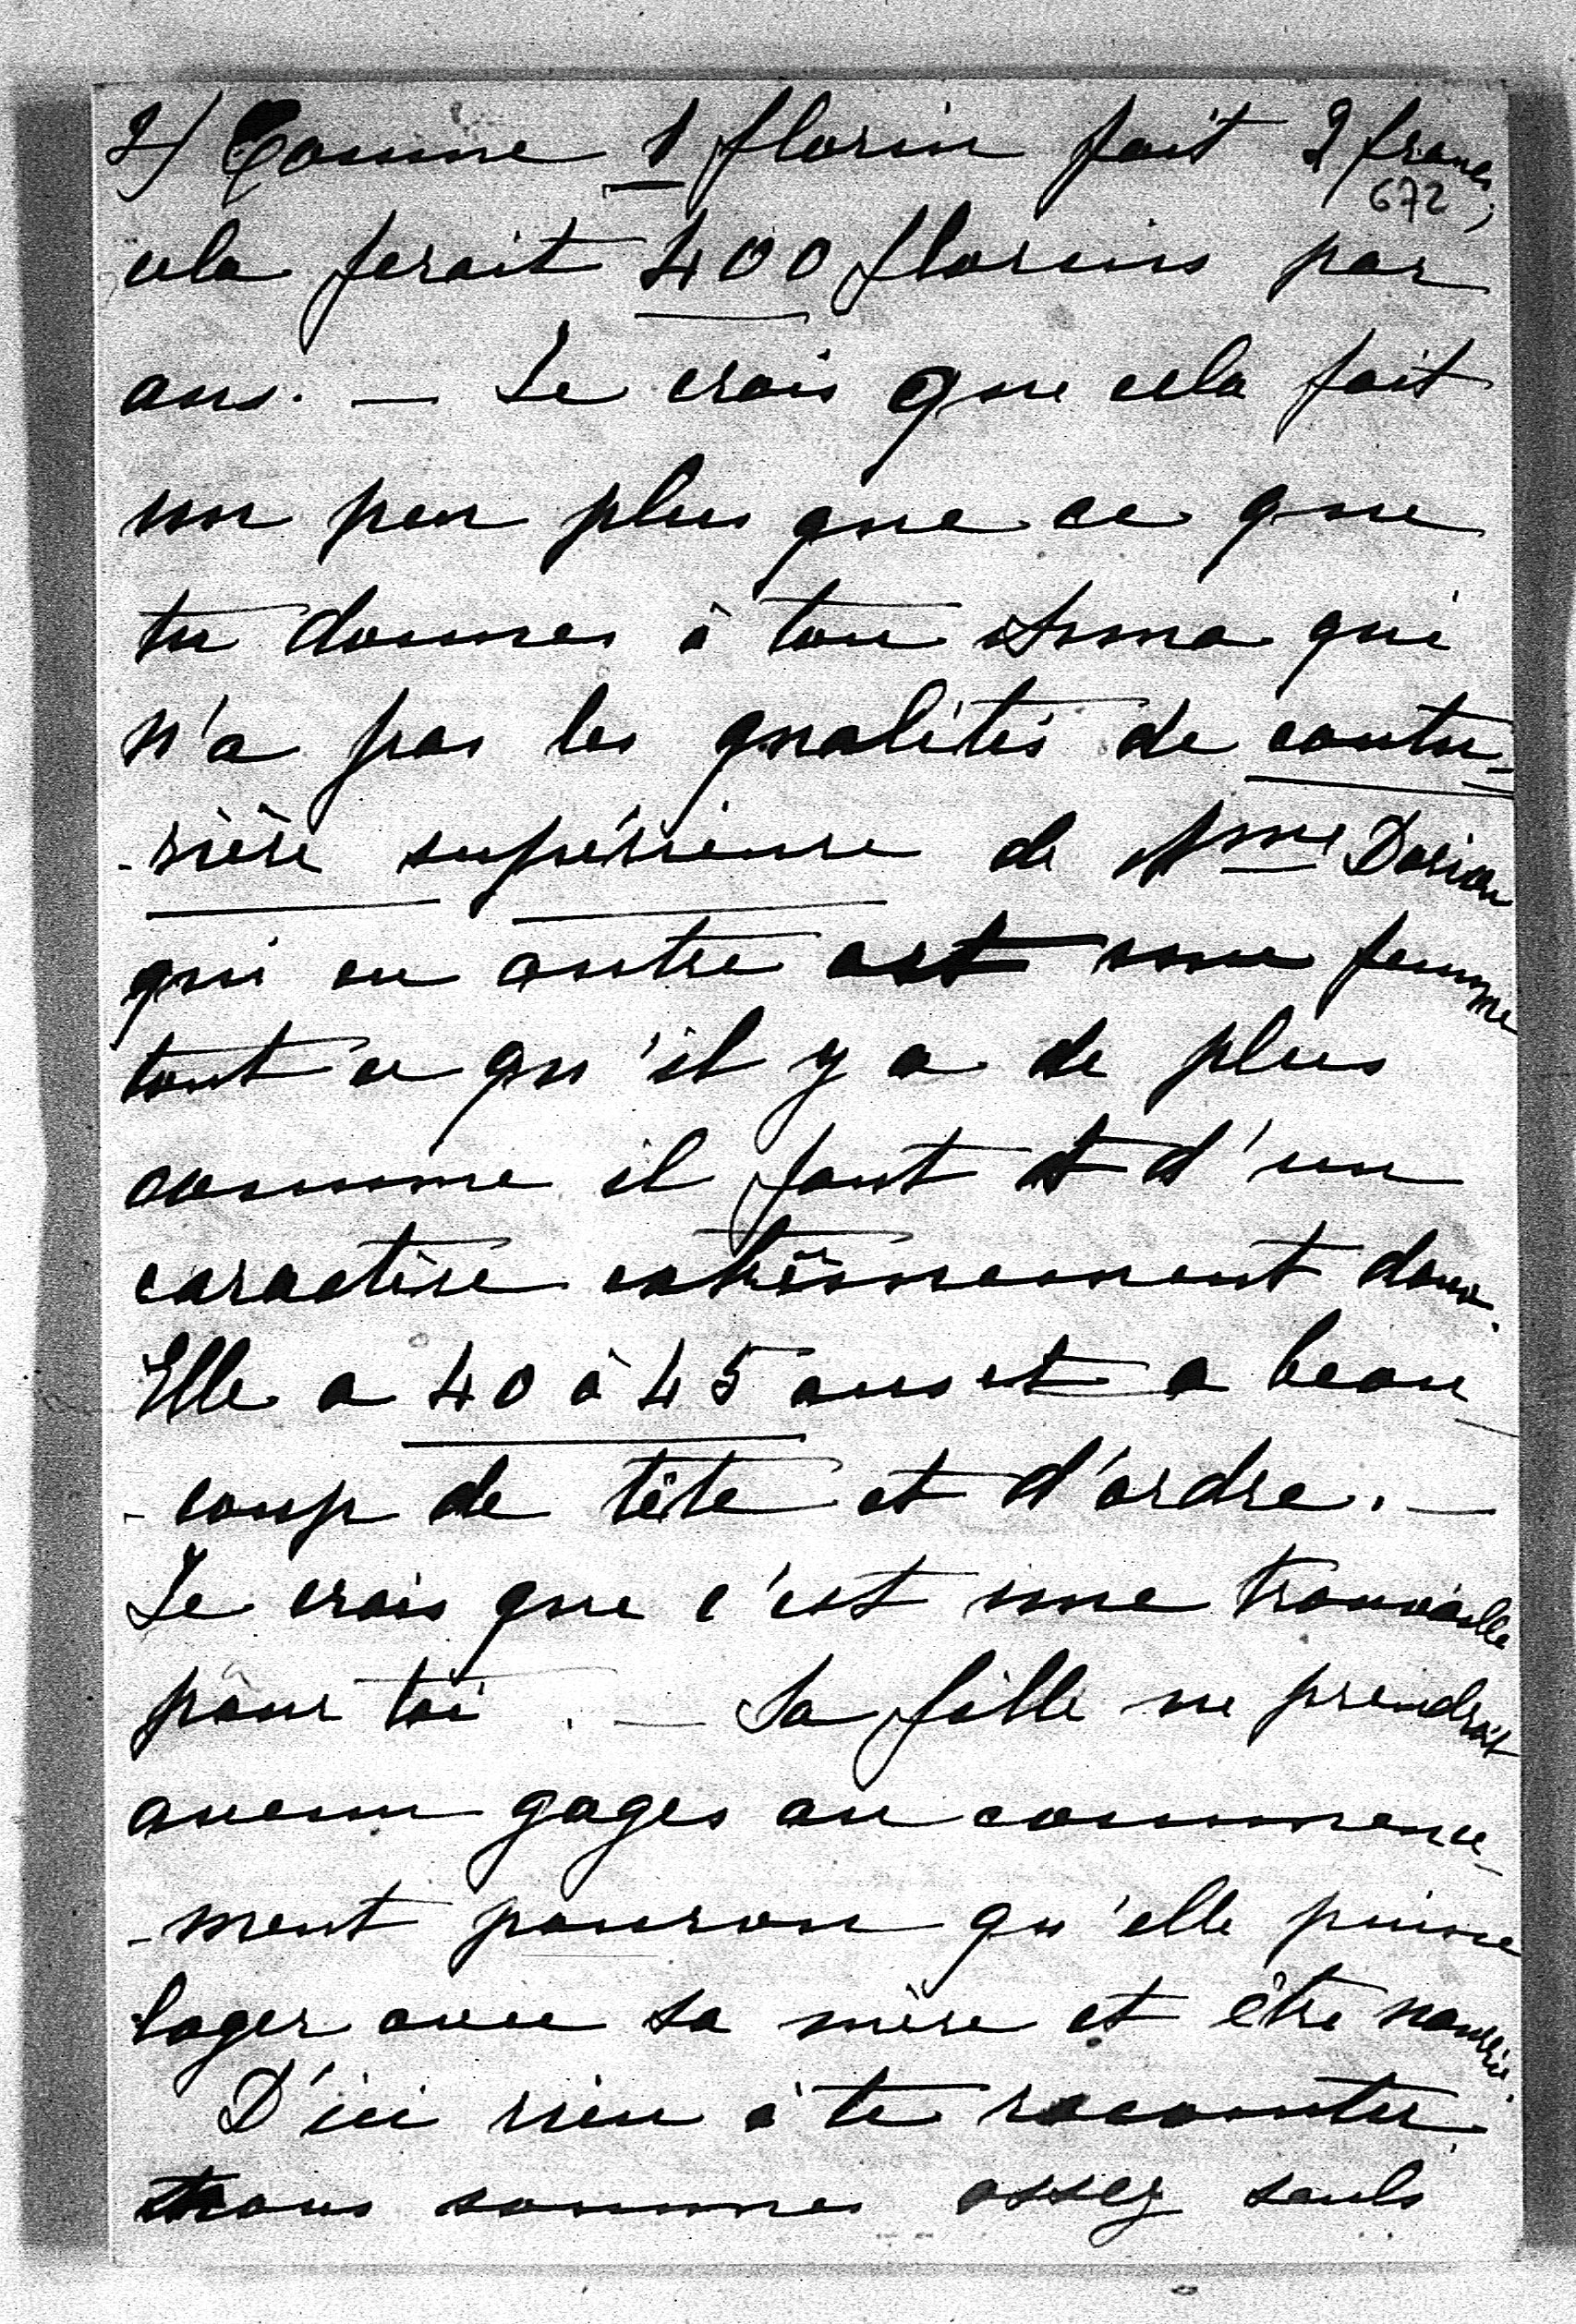 2) Comme 1 florin fait 2 francs,
672
cela ferait 400 florins par
ans. — Je crois que cela fait
un peu plus que ce que
tu donnes à ton Anna qui
n'a pas les qualités de coutu-
-rière supérieure de Mme Dorion
qui en outre est une femme
tout ce qu'il y a de plus
comme il faut et d'un
caractère extrêmement doux.
Elle a 40 à 45 ans et a beau-
-coup de tête et d'ordre. —
Je crois que c'est une trouvaille
pour toi. — Sa fille ne prendrait
aucun gages au commence-
-ment pourvu qu'elle puisse
loger avec sa mère et être nourrie.
D'ici rien à te raconter.
nous sommes assez seuls